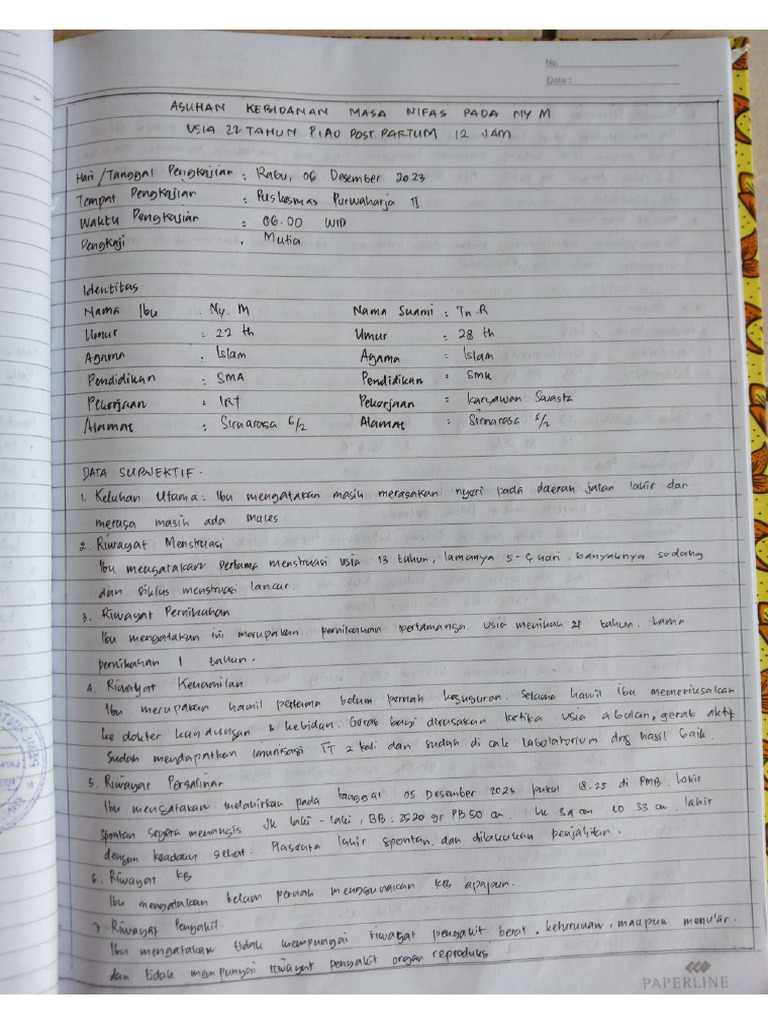 No.
Date :
ASUHAN KEBIDANAN MASA NIFAS PADA NY M
USIA 22 TAHUN P1A0 POST PARTUM 12 JAM
Hari / Tanggal Pengkajian : Rabu, 06 Desember 2023
Tempat Pengkajian : Puskesmas Purwaharja II
Waktu Pengkajian : 06.00 WIB
Pengkaji : Mutia
Identitas
Nama Ibu : Ny. M Nama Suami : Tn. R
Umur : 22 th Umur : 28 th
Agama : Islam Agama : Islam
Pendidikan : SMA Pendidikan : SMK
Pekerjaan : IRT Pekerjaan : Karyawan Swasta
Alamat : Sirnarasa 6/2 Alamat : Sirnarasa 6/2
DATA SUBJEKTIF.
1. Keluhan Utama : Ibu mengatakan masih merasakan nyeri pada daerah jalan lahir dan
merasa masih ada mules.
2. Riwayat Menstruasi
Ibu mengatakan pertama menstruasi usia 13 tahun, lamanya 5- hari, banyaknya sedang
dan siklus menstruasi lancar.
3. Riwayat Pernikahan
Ibu mengatakan ini merupakan pernikahan pertamanya. Usia menikah 21 tahun. Lama
pernikahan 1 tahun.
4. Riwayat Kehamilan
Ibu merupakan hamil pertama belum pernah keguguran. Selama hamil ibu memeriksakan
ke dokter kandungan & kebidan. Gerak bayi dirasakan ketika usia 4 bulan, gerak aktif
Sudah mendapatkan imunisasi TT 2 kali dan sudah di cek labolatorium dng hasil baik.
5. Riwayat Persalinan
Ibu mengatakan melahirkan pada tanggal 05 Desember 2023 pukul 18.25 di PMB. Lahir
spontan segera menangis Jk laki-laki, BB : 3520 gr PB 50 cm. LK 34 cm LD 33 cm. lahir
dengan keadaan sehat. Plasenta lahir spontan dan dilakukan penjahitan.
6. Riwayat KB
Ibu mengatakan belum pernah menggunakan KB apapun.
7. Riwayat Penyakit.
Ibu mengatakan tidak mempunyai riwayat penyakit berat, keturunan, maupun menular.
dan tidak mempunyai riwayat penyakit organ reproduksi
PAPERLINE